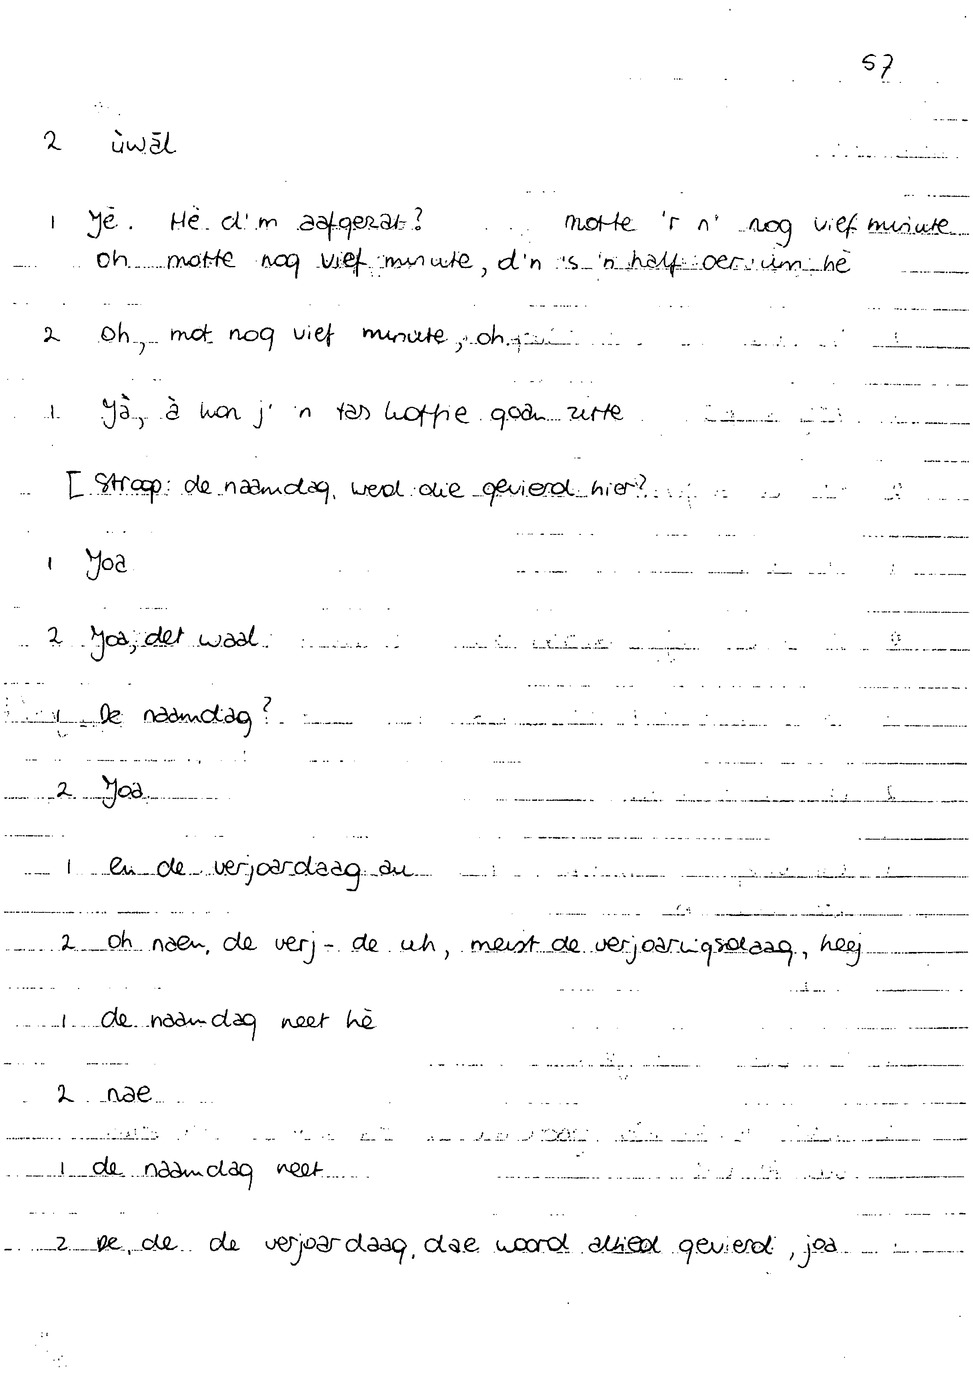 57
2 ùwāl
1 Yè. Hè d'm aafgezat? motte 'r n' nog vief minute
oh motte nog vief minute, d'n 's 'n half oer um hè
2 Oh, mot nog vief minute, oh
1 Yà, à kon j' 'n tas koffie goan zitte
[Stroop: de naamdag, werd die gevierd hier?
1 Yoa
2 Yoa, det waal
1 De naamdag?
2 Yoa
1 en de verjoardaag au
2 oh naen, de verj- de uh, meist de verjoaringsdaag, heej
1 de naamdag neet hè
2 nae
1 de naamdag neet
2 De, de de verjoardaag, dae woord altied gevierd, joa